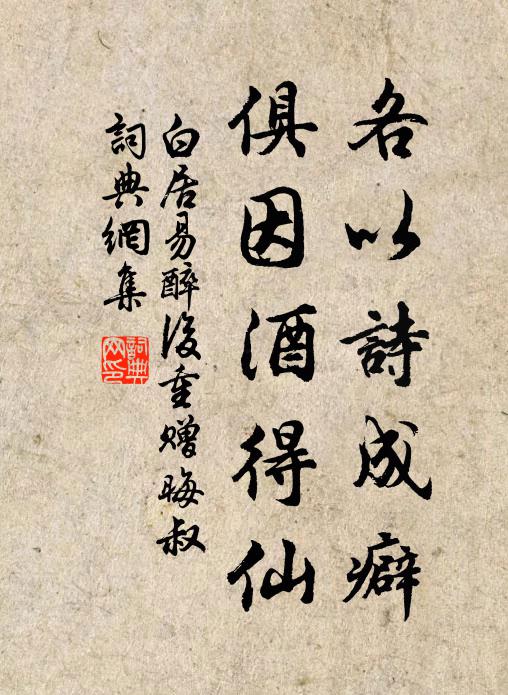 各以詩成癖
俱因酒得仙
白居易醉後重贈晦叔
詞典網集
詞典網印